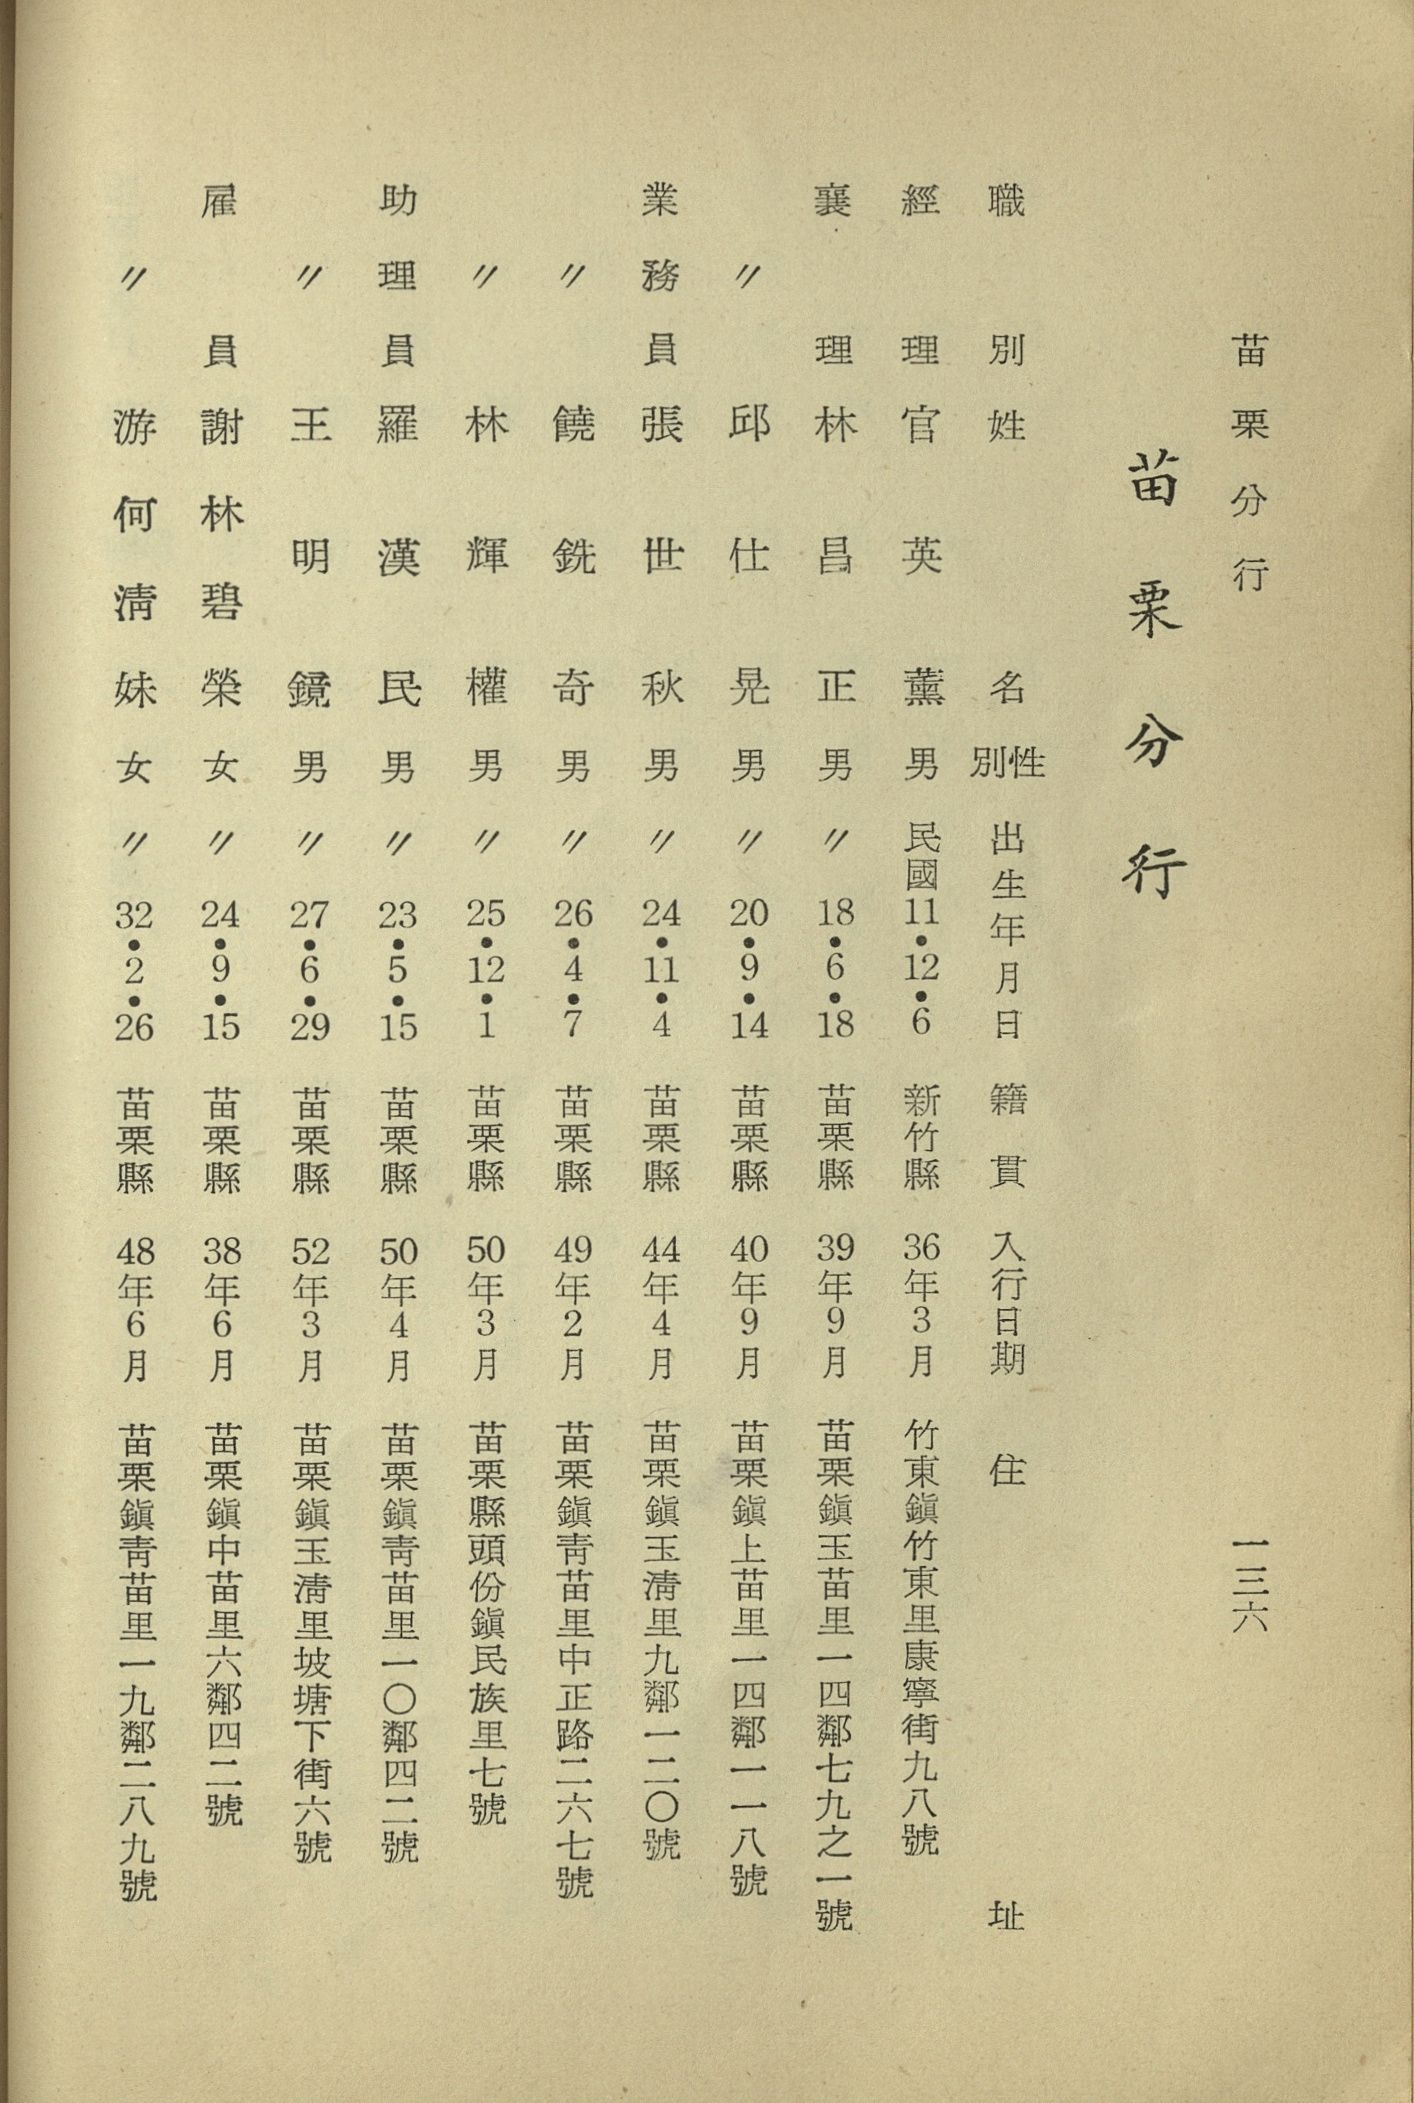 苗栗分行
一三六
苗栗分行
職別 姓名 性別 出生年月日 籍貫 入行日期 住址
經理 官英薰 男 民國11•12•6 新竹縣 36年3月 竹東鎭竹東里康寧街九八號
襄理 林昌正 男 〃18•6•18 苗栗縣 39年9月 苗栗鎭玉苗里一四鄰七九之一號
〃 邱仕晃 男 〃20•9•14 苗栗縣 40年9月 苗栗鎭上苗里一四鄰一一八號
業務員 張世秋 男 〃24•11•4 苗栗縣 44年4月 苗栗鎭玉淸里九鄰一二〇號
〃 饒銑奇 男 〃26•4•7 苗栗縣 49年2月 苗栗鎭靑苗里中正路二六七號
〃 林輝權 男 〃25•12•1 苗栗縣 50年3月 苗栗縣頭份鎭民族里七號
助理員 羅漢民 男 〃23•5•15 苗栗縣 50年4月 苗栗鎭靑苗里一〇鄰四二號
〃 王明鏡 男 〃27•6•29 苗栗縣 52年3月 苗栗鎭玉淸里坡塘下街六號
雇員 謝林碧榮 女 〃24•9•15 苗栗縣 38年6月 苗栗鎭中苗里六鄰四二號
〃 游何淸妹 女 〃32•2•26 苗栗縣 48年6月 苗栗鎭靑苗里一九鄰二八九號